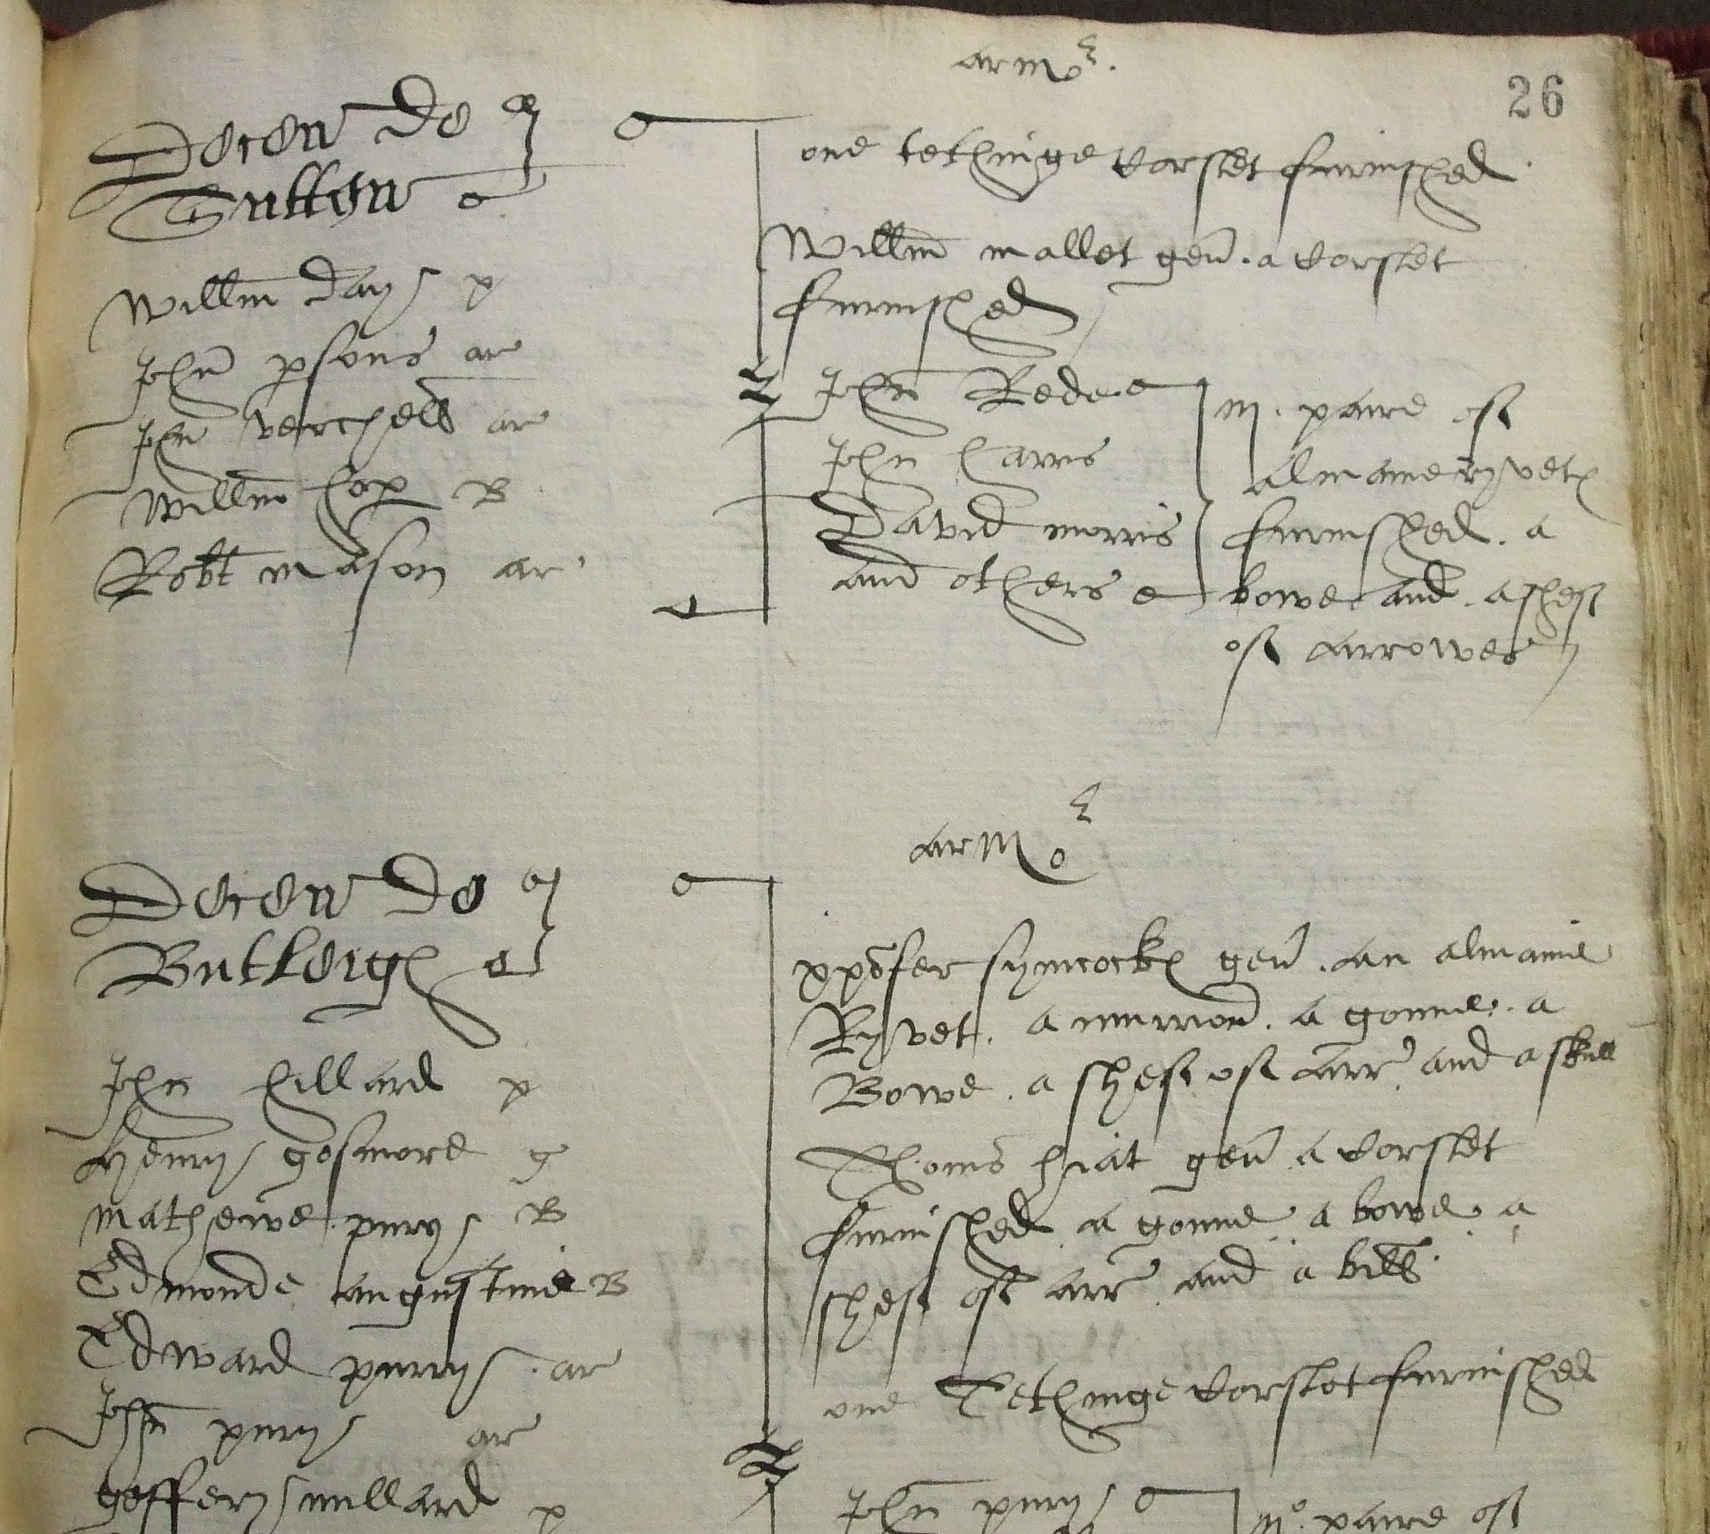 26
armor
Decen de
Sutton
Willm Days p
John psons ar
John verchell ar
Willm hop B
Robt mason ar
one tethinge Corslet furnished
Willm mallet gen. a Corslet
furnished
John Rede
John harris
David morris
and others
iij. paire of
almaine ryvetes
furnished. a
bowe and. a shef
of arrowes
armor
Decen de
Butleigh
John hillard p
Henry gosmore g
mathewe pury B
Edmonde augustine B
Edward purry. ar
John pury ar
geffery millard p
xpofer symcockes gen. an almaine
Ryvet. a murrion. a gonne. a
Bowe. a shef of arr. and a skull
Thoms hiat gen. a Corslet
furnished. a gonne. a bowe. a
shef of arr. and a bill.
one Tethinge Corslet furnished
John pury
ijo. paire of